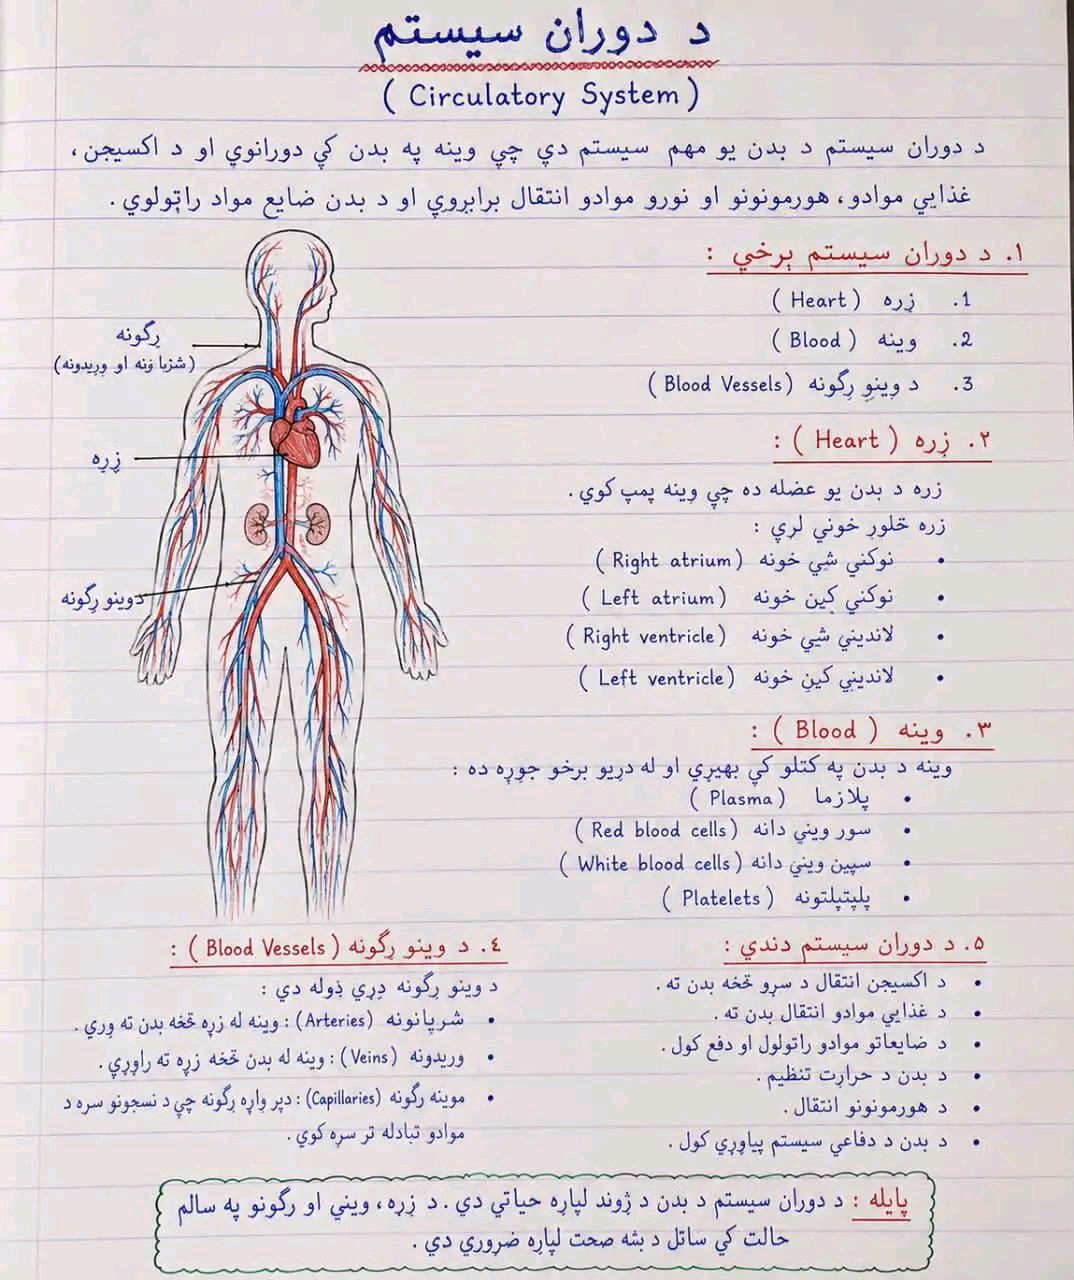 د دوران سیستم
( Circulatory System )
د دوران سیستم د بدن یو مهم سیستم دي چې وینه په بدن کې دورانوي او د اکسیجن،
غذایي موادو، هورمونونو او نورو موادو انتقال برابروي او د بدن ضایع مواد راټولوي .
۱. د دوران سیستم برخې :
1. زړه ( Heart )
2. وینه ( Blood )
3. د وینو رګونه ( Blood Vessels )
رګونه
او وریدونه)
زړه
دوینو رګونه
۲. زړه ( Heart ) :
زړه د بدن یو عضله ده چې وینه پمپ کوي .
زړه څلور خونې لري :
• نوکني شي خونه ( Right atrium )
• نوکني کین خونه ( Left atrium )
• لاندیني شي خونه ( Right ventricle )
• لاندیني کین خونه ( Left ventricle )
۳. وینه ( Blood ) :
وینه د بدن په کتلو کې بهیږي او له دریو برخو جوړه ده :
• پلازما ( Plasma )
• سور ویني دانه ( Red blood cells )
• سپین ویني دانه ( White blood cells )
• ( Platelets )
٤. د وینو رګونه ( Blood Vessels ) :
د وینو رګونه دري ډوله دي :
• شریانونه (Arteries) : وینه له زړه څخه بدن ته وري .
• وریدونه (Veins) : وینه له بدن څخه زړه ته راوړي .
• موینه رګونه (Capillaries) : دپر واړه رګونه چې د نسجونو سره د
موادو تبادله تر سره کوي .
۵. د دوران سیستم دندې :
• د اکسیجن انتقال د سږو څخه بدن ته .
• د غذایي موادو انتقال بدن ته .
• د ضایعاتو موادو راتولول او دفع کول .
• د بدن د حرارت تنظیم .
• د هورمونونو انتقال .
• د بدن د دفاعي سیستم پیاوړي کول .
پایله : د دوران سیستم د بدن د ژوند لپاره حیاتي دي . د زړه، ویني او رګونو په سالم
حالت کې ساتل د بشه صحت لپاره ضروري دي .